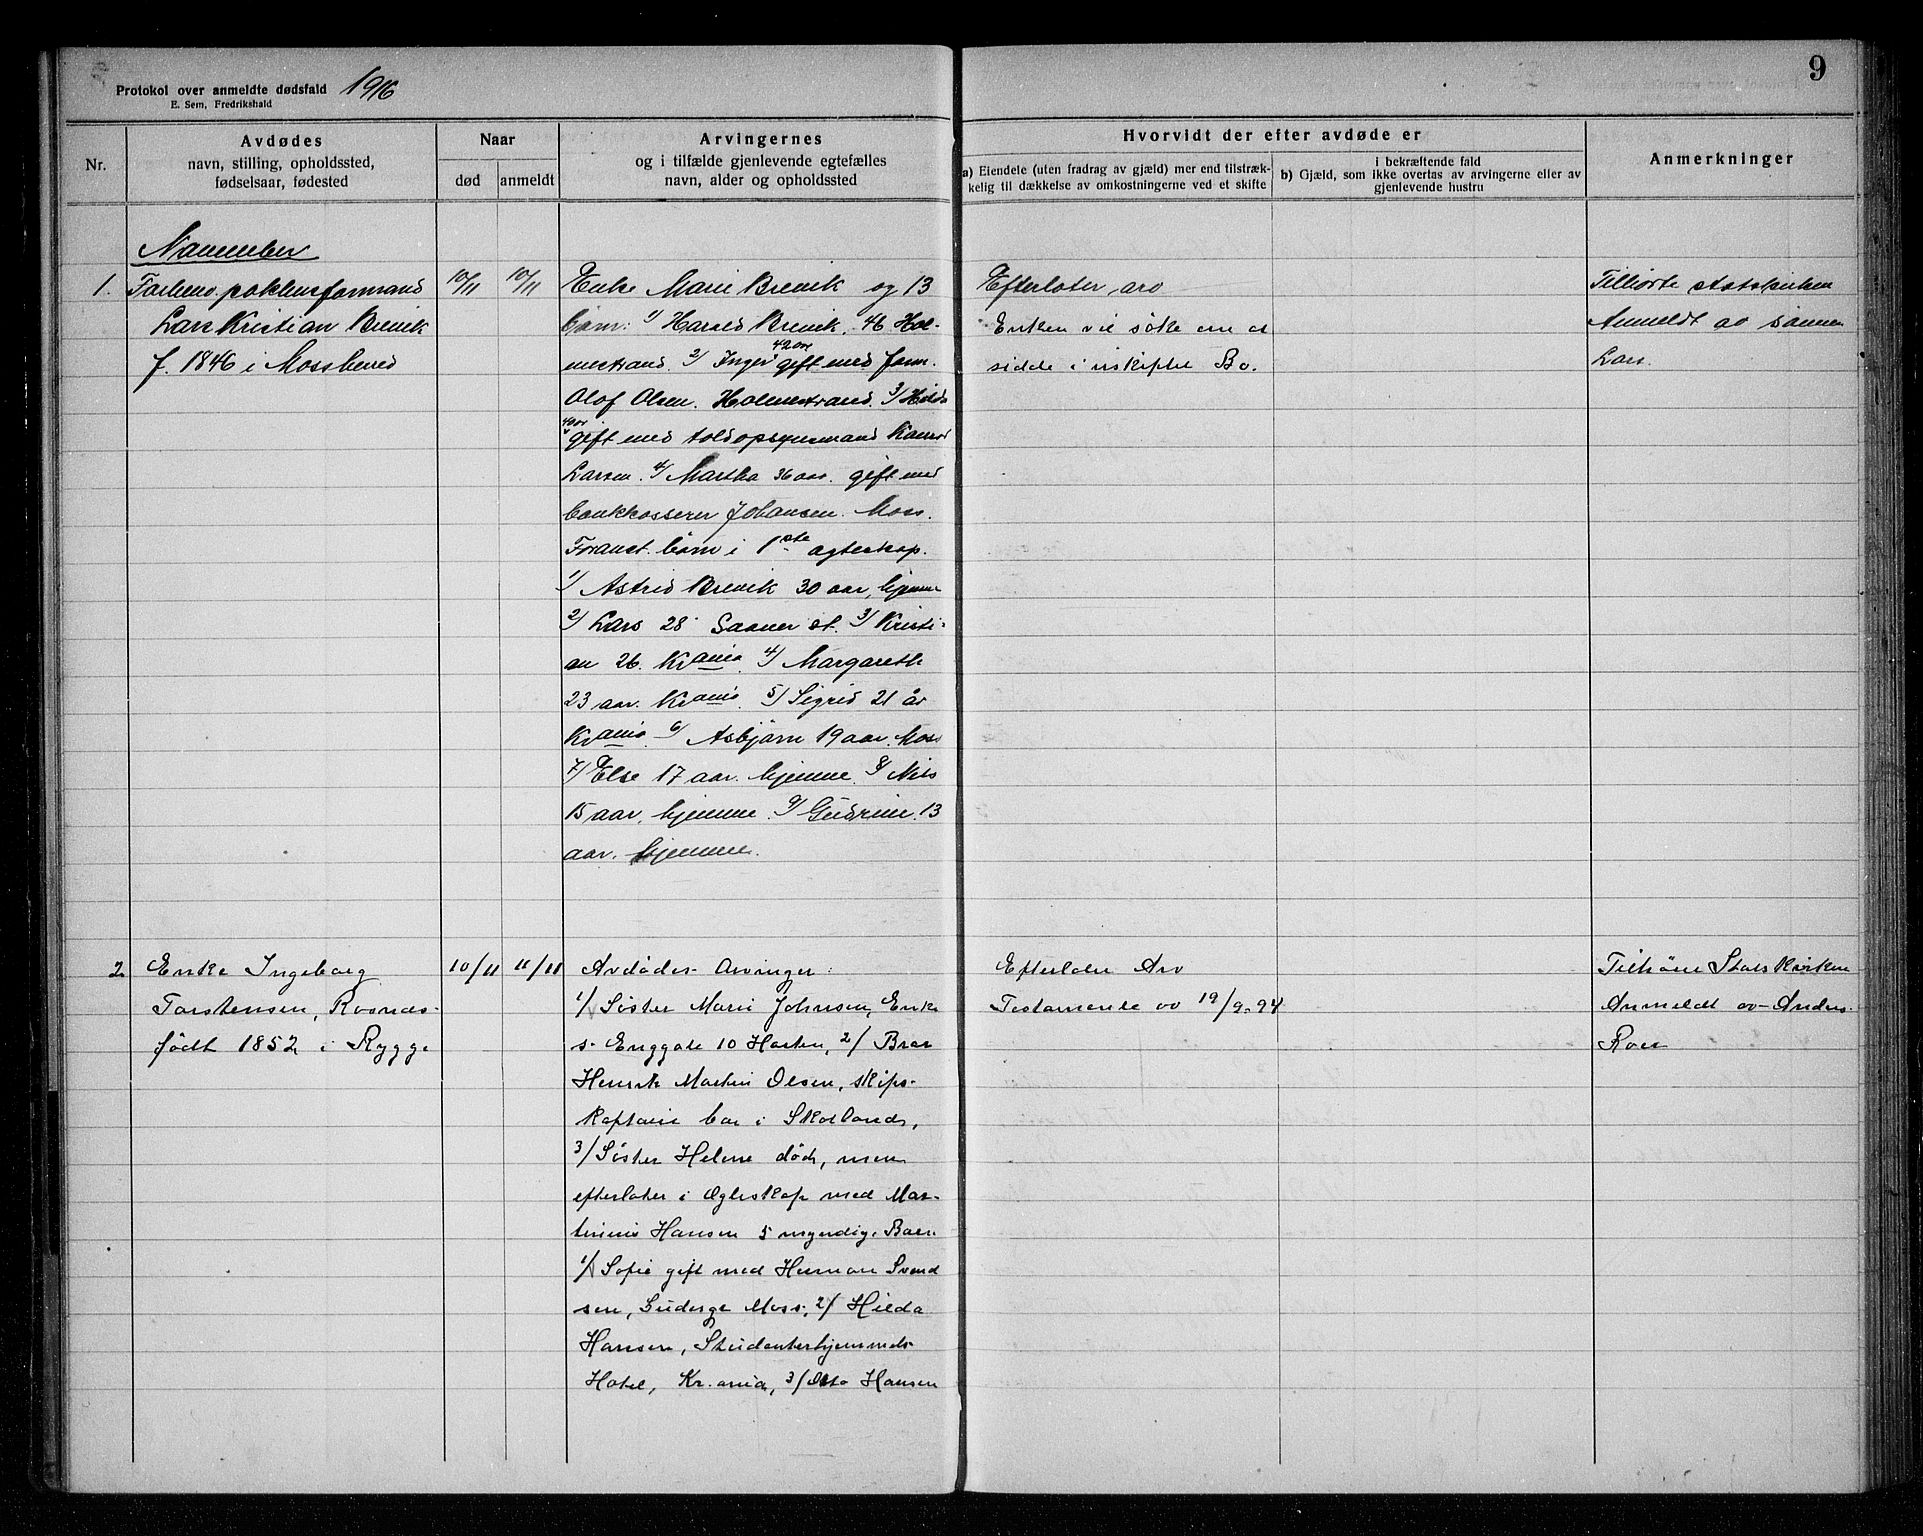 Protokol over anmeldte dødsfald 1916
E. Sem, Fredrikshald
9
Nr.
Avdødes
navn, stilling, opholdssted,
fødselsaar, fødested
Naar
død
anmeldt
Arvingernes
og i tilfælde gjenlevende egtefælles
navn, alder og opholdssted
Hvorvidt der efter avdøde er
a) Eiendele (uten fradrag av gjæld) mer end tilstræk-
kelig til dækkelse av omkostningerne ved et skifte
i bekræftende fald
b) Gjæld, som ikke overtas av arvingerne eller av
gjenlevende hustru
Anmerkninger
November
1.
Lars Kristian Brevik
f. 1846 i Mossherred
10/11
10/11
Enke Marie Brevik og 13
børn: 1/ Harald Brevik, 46 Hol-
mestrand. 2/ Inger 42 aar gift med form.
Olof Olsen. Holmestrand. 3/ Hilda
40 aar gift med toldopsynsmand
Larsen. 4/ Martha 36 aar. gift med
bankkasserer Johansen. Moss.
børn i 1ste egteskap.
1/ Astrid Brevik 30 aar, hjemme
2/ Lars 28 Saaner st. 3/ Kristi-
an 26. Krania. 4/ Margareth
23 aar. Krania. 5/ Sigrid 21 år
Krania. 6/ Asbjørn 19 aar. Moss
7/ Else 17 aar. hjemme. 8/ Nils
15 aar. hjemme. 9/ Gudrun. 13
aar. hjemme.
Efterlater arv
Enken vil søke om at
sidde i uskiftet Bo.
Tilhørte statskirken
Anmeldt av sønnen
Lars.
2
Enke Ingeborg
Torstensen, Rosnes-
født 1852 i Rygge
10/11
11/11
Avdødes Arvinger:
1/ Søster Marie Johnsen, Enke
s. Enggate 10 Horten, 2/ Bror
Henrik Martin Olsen, skips-
kaptain bor i Skotland,
3/ Søster Helene død, men
efterlater i Egteskap med Mar-
tinius Hansen 5 myndig. Barn
1/ Sofie gift med Herman Svend
sen, Moss, 2/ Hilda
Hansen, Studenterhjemmets
Hotel, Kr.ania, 3/ Otto Hansen
Efterlater Arv
Testamente av 19/9.94
Tilhører Statskirken
Anmeldt av Anders
Roer